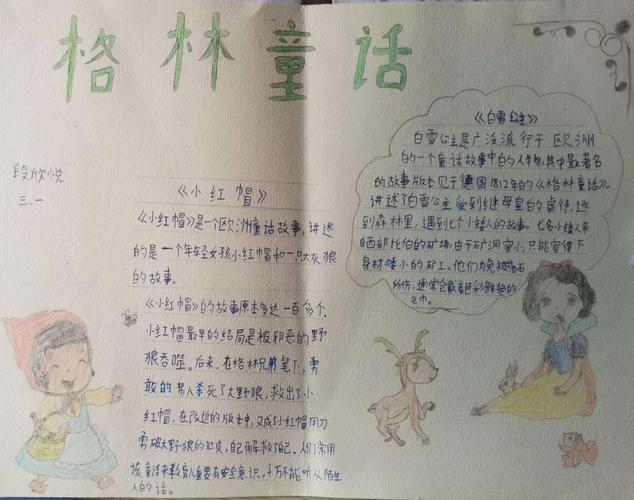 格林童话
段欣悦
三.一
《小红帽》
《小红帽》是个欧洲童话故事,讲述
的是一个年轻女孩小红帽和一只大灰狼
的故事。
《小红帽》的故事原本多达一百多个,
小红帽最早的结局是被邪恶的野
狼吞噬。后来,在格林兄弟笔下,勇
敢的男人杀死了大野狼,救出了小
红帽。在改进的版本中,又成了小红帽用刀
剪破大野狼的肚皮,自己解救了自己。人们常用
该童话来教育儿童要有安全意识,千万不能听从陌生
人的话。
《白雪公主》
白雪公主是广泛流行于欧洲
的一个童话故事中的人物,其中最著名
的故事版本见于德国1812年的《格林童话》。
讲述了白雪公主受到继母皇的虐待,逃
到森林里,遇到七个小矮人的故事。七名小矮人来
西部比伯的矿场,由于矿洞窄小,只能容得下
身材矮小的矿工。他们为免被落石
所伤,通常会戴着色彩鲜艳的
头巾。